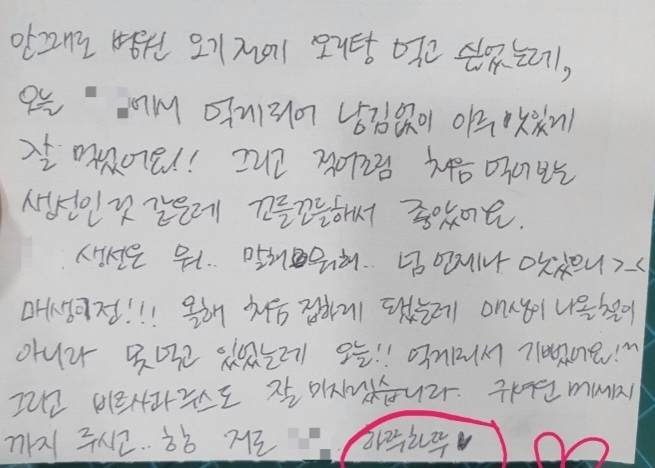 안그래도 병원 오기전에 오리탕 먹고 싶었는데,
오늘 에서 먹게되어 남김없이 아주 맛있게
잘 먹었어요!! 그리고 처음 먹어보는
생선인 것 같은데 꼬들꼬들해서 좋았어요.
생선은 뭐.. 말해 뭐해.. 넘 언제나 맛있으니 >_<
매생이전!!! 올해 처음 접하게 됐는데 매생이 나올 철이
아니라 못먹고 있었는데 오늘!! 먹게되서 기뻤어요!^^
그리고 도 잘 마시겠습니다. 귀여운 메세지
까지 주시고.. 항 저도 하루하루